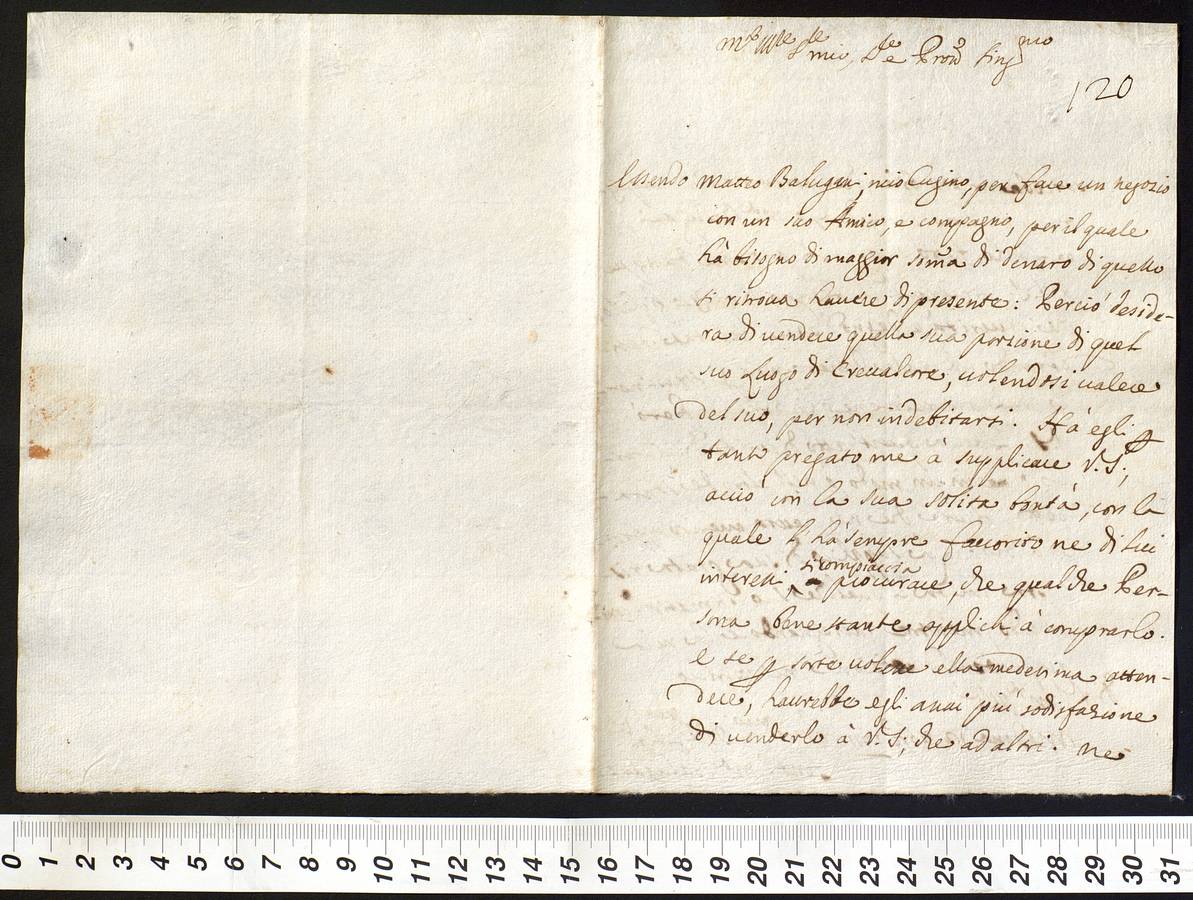 Mto Illre Sre mio, Sre e Pron̄ Sing.mo
120
Essendo Matteo Balugani, mio Cugino, per fare un negozio
con un suo Amico, e compagno, per il quale
hà bisogno di maggior som̄a di denaro di quello
si ritroua hauere di presente: Perciò deside-
ra di uendere quella sua porzione di quel
suo Luogo di Creualcore, uolendosi ualere
del suo, per non indebitarsi. Hà egli p
tanto pregato me à supplicare V.S.,
acciò con la sua solita bontà, con la
quale l'hà sempre fauorito ne di lui
interessi, si compiaccia procurare, che qualche Per-
sona benestante applichi à comprarlo.
e se p sorte uolesse ella medesima atten-
dere, haurebbe egli assai più sodisfazione
di uenderlo à V.S., che ad altri. ne